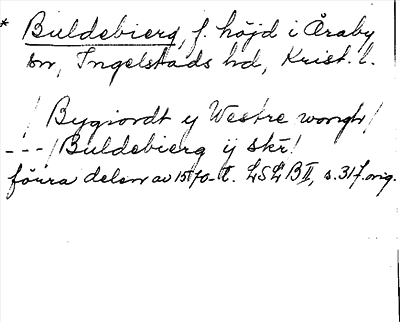 * Buldebierg, f. höjd i Åraby
sn, Ingelstads hd, Krist. l.
/ Bygiordt y Westre wongh /
--- / Buldebierg ÿ skr!
förra delen av 1570-t. LSLB II, s. 317. orig.